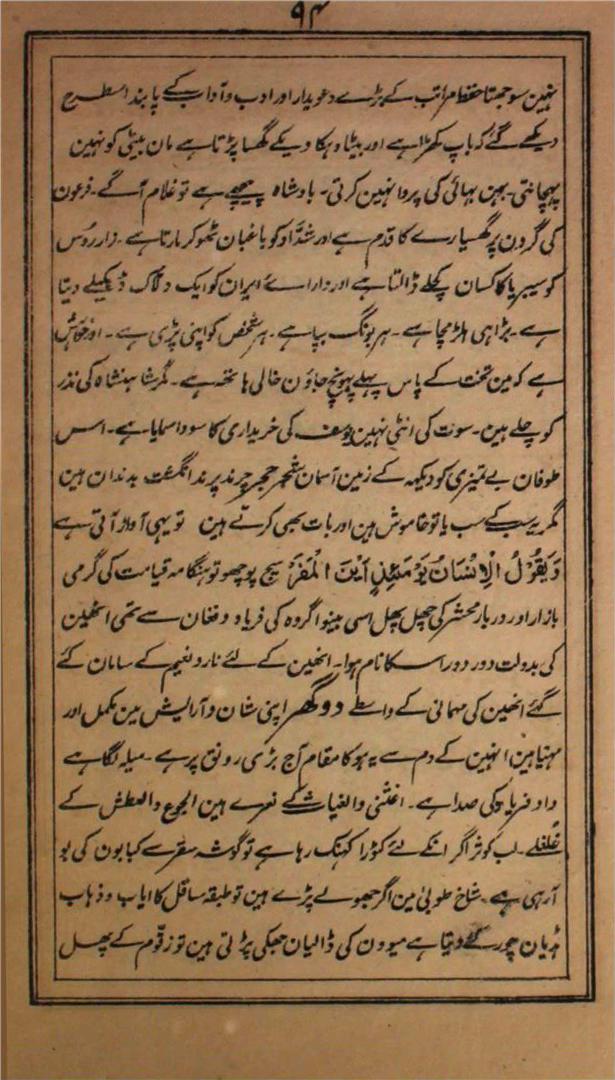 ۹۴
نہین سوجھتا حفظ مراتب کے بڑے دعویدار اور ادب و آداب کے پابند اسطرح
دیکھے گئے کہ باپ کھڑا ہے اور بیٹا دہکا دیکے گھسا پڑتا ہے مان بیٹی کو نہین
پہچانتی۔ بہن بہائی کی پروا نہین کرتی۔ بادشاہ پیچھے ہے تو غلام آگے۔ فرعون
کی گردن پر گھسیارے کا قدم ہے اور شدّاد کو باغبان ٹھوکر مارتا ہے۔ زار روس
کو سیبریا کا کسان کچلے ڈالتا ہے اور داراے ایران کو ایک دلاک ڈہکیلے دیتا
ہے۔ بڑا ہی ہلڑ مچا ہے۔ ہر بونگ بپا ہے۔ ہر شخص کو اپنی پڑی ہے۔ اور خواہش
ہے کہ مین تخت کے پاس پہلے پہونچ جاؤن خالی ہاتھہ ہے۔ مگر شاہنشاہ کی نذر
کو چلے ہین۔ سوت کی انٹی نہین یوسف کی خریداری کا سودا سمایا ہے۔ اسس
طوفان بے تمیزی کو دیکھہ کے زمین آسمان شجر حجر چرند پرند انگشت بدندان ہین
مگر یہ سب کے سب یا تو خاموش ہین اور بات بھی کرتے ہین تو یہی آواز آتی ہے
وَیَقُوْلُ الْاِنْسَانُ یَوْمَئِذٍ اَیْنَ الْمَفَرّ سچ پوچھو تو ہنگامہ قیامت کی گرمی
بازار اور دربار محشر کی چہل پہل اسی بینوا گروہ کی فریاد و فغان سے تھی انھین
کی بدولت دور دور اسکا نام ہوا۔ انھین کے لئے نار و نعیم کے سامان کئے
گئے انھین کی مہمانی کے واسطے دو گھر اپنی شان و آرایش مین مکمل اور
مہیا ہین انہین کے دم سے یہ ہو کا مقام آج بڑی رونق پر ہے۔ میلہ لگا ہے
داد و فریاد کی صدا ہے۔ اغثنی والغیاث کے نعرے ہین الجوع والعطش کے
غلغلے۔ لب کوثر اگر انکے لئے کٹورا کہنک رہا ہے تو گوشہ سقر سے کبابون کی بو
آرہی ہے۔ شاخ طوبیٰ مین اگر جھولے پڑے ہین تو طبقہ سافل کا ایاب و ذہاب
ہڈیان چور کئے دیتا ہے میوون کی ڈالیان جھکی پڑتی ہین تو زقّوم کے پھل